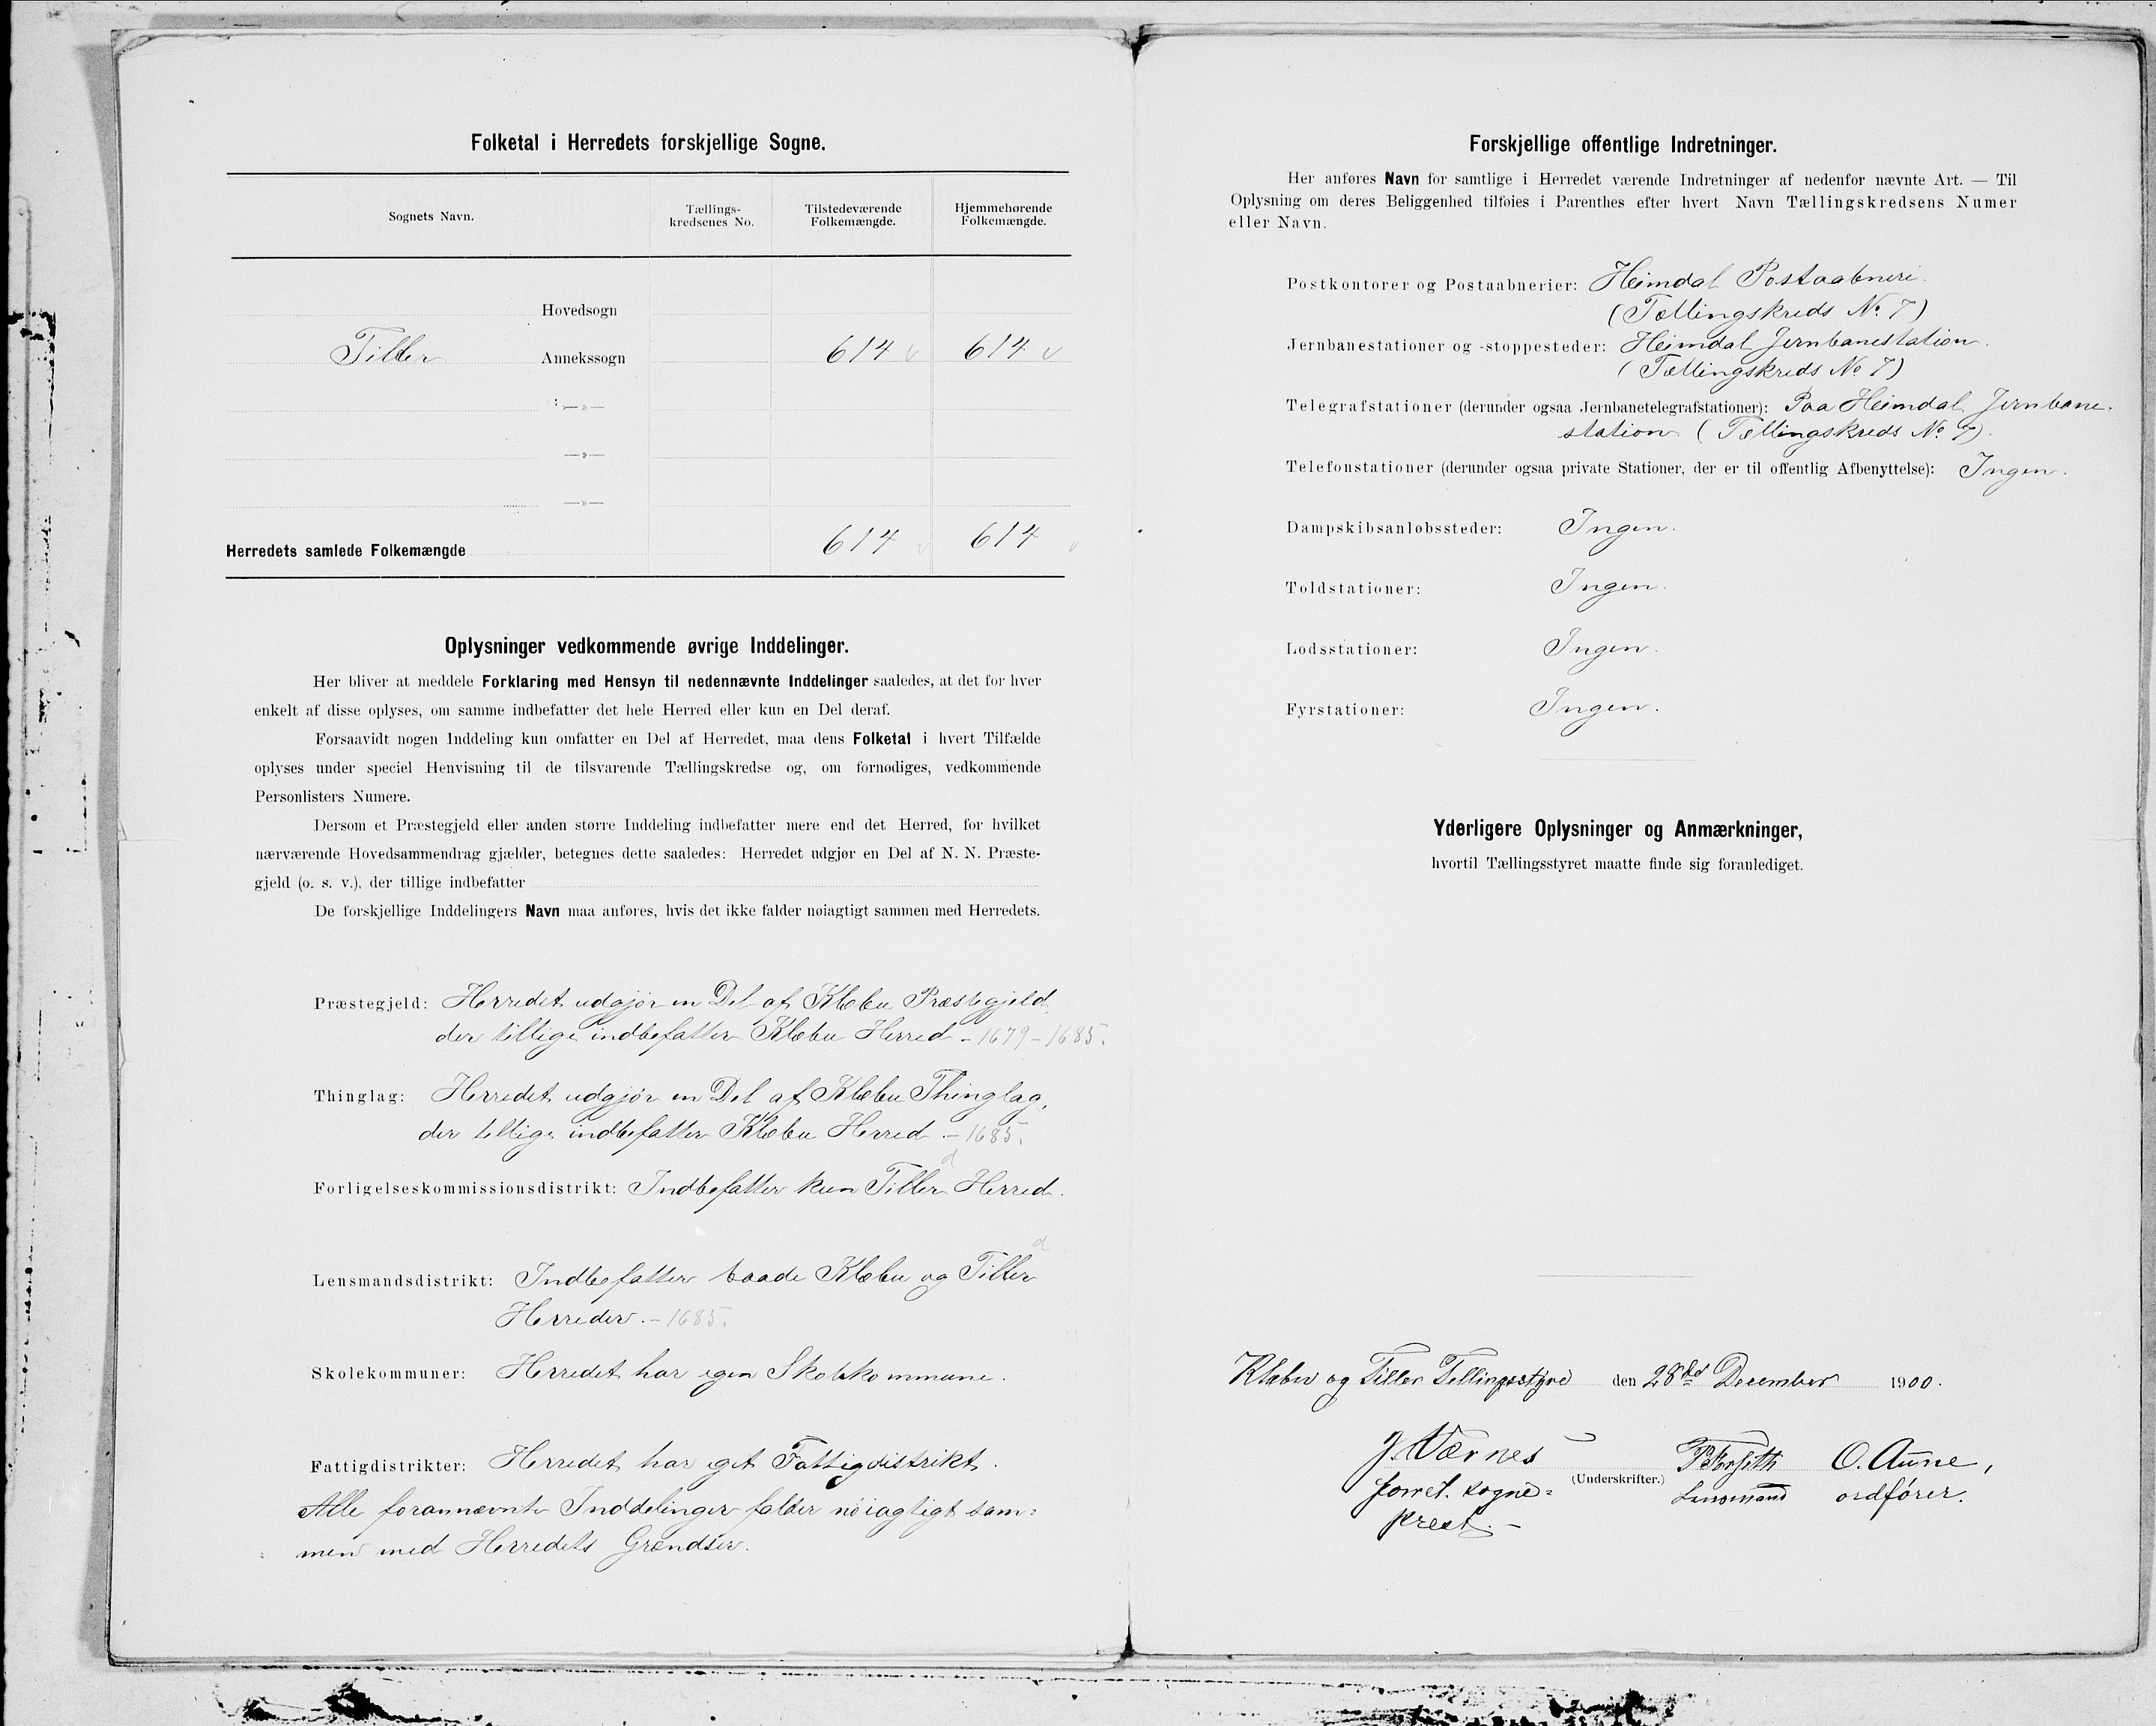 Folketal i Herredets forskjellige Sogne.
Sognets Navn.
Tællings-
kredsenes No.
Tilstedeværende
Folkemængde.
Hjemmehørende
Folkemængde.
Hovedsogn
Tiller Annekssogn 614 614
—»—
—»—
—»—
Herredets samlede Folkemængde 614 614
Oplysninger vedkommende øvrige Inddelinger.
Her bliver at meddele Forklaring med Hensyn til nedennævnte Inddelinger saaledes, at det for hver
enkelt af disse oplyses, om samme indbefatter det hele Herred eller kun en Del deraf.
Forsaavidt nogen Inddeling kun omfatter en Del af Herredet, maa dens Folketal i hvert Tilfælde
oplyses under speciel Henvisning til de tilsvarende Tællingskredse og, om fornødiges, vedkommende
Personlisters Numere.
Dersom et Præstegjeld eller anden større Inddeling indbefatter mere end det Herred, for hvilket
nærværende Hovedsammendrag gjælder, betegnes dette saaledes: Herredet udgjør en Del af N. N. Præste-
gjeld (o. s. v.), der tillige indbefatter
De forskjellige Inddelingers Navn maa anføres, hvis det ikke falder nøiagtigt sammen med Herredets.
Præstegjeld: Herredet udgjør en Del af Klæbu Præstegjeld,
der tillige indbefatter Klæbu Herred - 1679 - 1685.
Thinglag: Herredet udgjør en Del af Klæbu Thinglag,
der tillige indbefatter Klæbu Herred. - 1685.
Forligelseskommissionsdistrikt: Indbefatter kun Tiller Herred.
Lensmandsdistrikt: Indbefatter baade Klæbu og Tiller
Herreder. - 1685.
Skolekommuner: Herredet har egen Skolekommune.
Fattigdistrikter: Herredet har eget Fattigdistrikt.
Alle forannævnte Inddelinger falder nøiagtigt sam=
men med Herredets Grændser.
Forskjellige offentlige Indretninger.
Her anføres Navn for samtlige i Herredet værende Indretninger af nedenfor nævnte Art. — Til
Oplysning om deres Beliggenhed tilføies i Parenthes efter hvert Navn Tællingskredsens Numer
eller Navn.
Postkontorer og Postaabnerier: Heimdal Postaabneri.
(Tællingskreds No. 7)
Jernbanestationer og -stoppesteder: Heimdal Jernbanestation.
(Tællingskreds No 7)
Telegrafstationer (derunder ogsaa Jernbanetelegrafstationer): Paa Heimdal Jernbane-
station (Tællingskreds No. 7).
Telefonstationer (derunder ogsaa private Stationer, der er til offentlig Afbenyttelse): Ingen.
Dampskibsanløbssteder: Ingen.
Toldstationer: Ingen.
Lodsstationer: Ingen.
Fyrstationer: Ingen.
Yderligere Oplysninger og Anmærkninger,
hvortil Tællingsstyret maatte finde sig foranlediget.
Klæbu og Tiller Tellingsstyre den 28de December 1900.
J. Værnes P. Forseth O. Aune,
(Underskrifter.)
forret. sogne= Lensmand ordfører.
prest. -